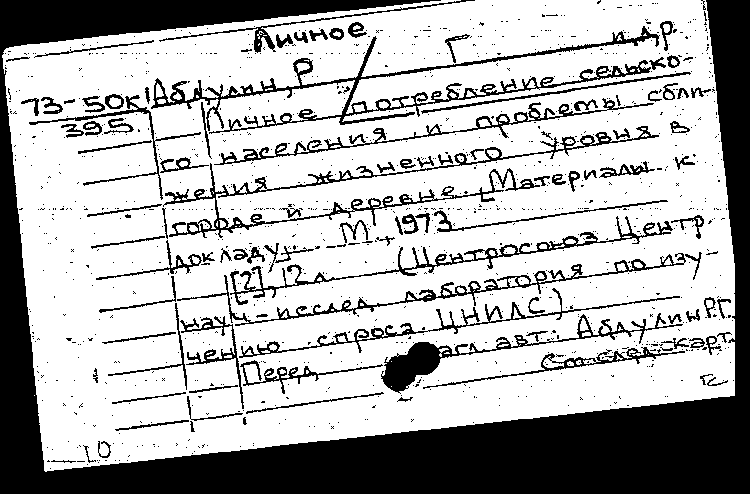 Личное
73-50к Абдулин, Р Г и др.
395 Личное потребление сельско-
го населения и проблемы сбли-
жения жизненного уровня в
городе и деревне. [Материалы к
докладу]. М., 1973
[2], 12 л. (Центросоюз Центр
науч-исслед. лаборатория по изу-
чению спроса. ЦНИЛС).
Перед загл. авт: Абдулин Р.Г.
См след. карт.
10